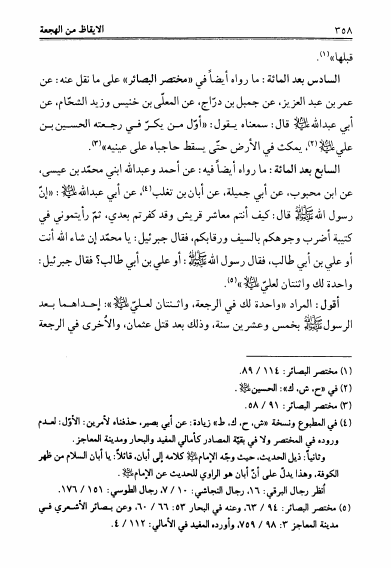 ٣٥٨ الايقاظ من الهجعة
قبلها»(١).
السادس بعد المائة: ما رواه أيضاً في «مختصر البصائر» على ما نقل عنه: عن
عمر بن عبد العزيز، عن جميل بن درّاج، عن المعلّى بن خنيس وزيد الشحّام، عن
أبي عبدالله ﷺ قال: سمعناه يقول: «أوّل من يكرّ في رجعته الحسين بن
علي ﷺ(٢)، يمكث في الأرض حتّى يسقط حاجباه على عينيه»(٣).
السابع بعد المائة: ما رواه أيضاً فيه: عن أحمد وعبدالله ابني محمّد بن عيسى،
عن ابن محبوب، عن أبي جميلة، عن أبان بن تغلب(٤)، عن أبي عبدالله ﷺ: «إنّ
رسول الله ﷺ قال: كيف أنتم معاشر قريش وقد كفرتم بعدي، ثمّ رأيتموني في
كتيبة أضرب وجوهكم بالسيف ورقابكم، فقال جبرئيل: يا محمّد إن شاء الله أنت
أو علي بن أبي طالب، فقال رسول الله ﷺ: أو علي بن أبي طالب؟ فقال جبرئيل:
واحدة لك واثنتان لعليّ ﷺ»(٥).
أقول: المراد «واحدة لك في الرجعة، واثنتان لعليّ ﷺ»: إحداهما بعد
الرسول ﷺ بخمس وعشرين سنة، وذلك بعد قتل عثمان، والأخرى في الرجعة
(١) مختصر البصائر: ١١٤ / ٨٩.
(٢) في «ح، ش، ك»: الحسين ﷺ.
(٣) مختصر البصائر: ٩١ / ٥٨.
(٤) في المطبوع ونسخة «ش، ح، ك، ط» زيادة: عن أبي بصير، حذفناه لأمرين: الأوّل: لعدم
وروده في المختصر ولا في بقيّة المصادر كأمالي المفيد والبحار ومدينة المعاجز.
وثانياً: ذيل الحديث، حيث وجّه الإمام ﷺ كلامه إلى أبان، قائلاً: يا أبان السلام من ظهر
الكوفة، وهذا يدلّ على أنّ أبان هو الراوي للحديث عن الإمام ﷺ.
اُنظر رجال البرقي: ١٦، رجال النجاشي: ١٠ / ٧، رجال الطوسي: ١٥١ / ١٧٦.
(٥) مختصر البصائر: ٩٤ / ٦٣، وعنه في البحار ٥٣: ٦٦ / ٦٠، وعن بصائر الأشعري فـي
مدينة المعاجز ٣: ٩٨ / ٧٥٩، وأورده المفيد في الأمالي: ١١٢ / ٤.